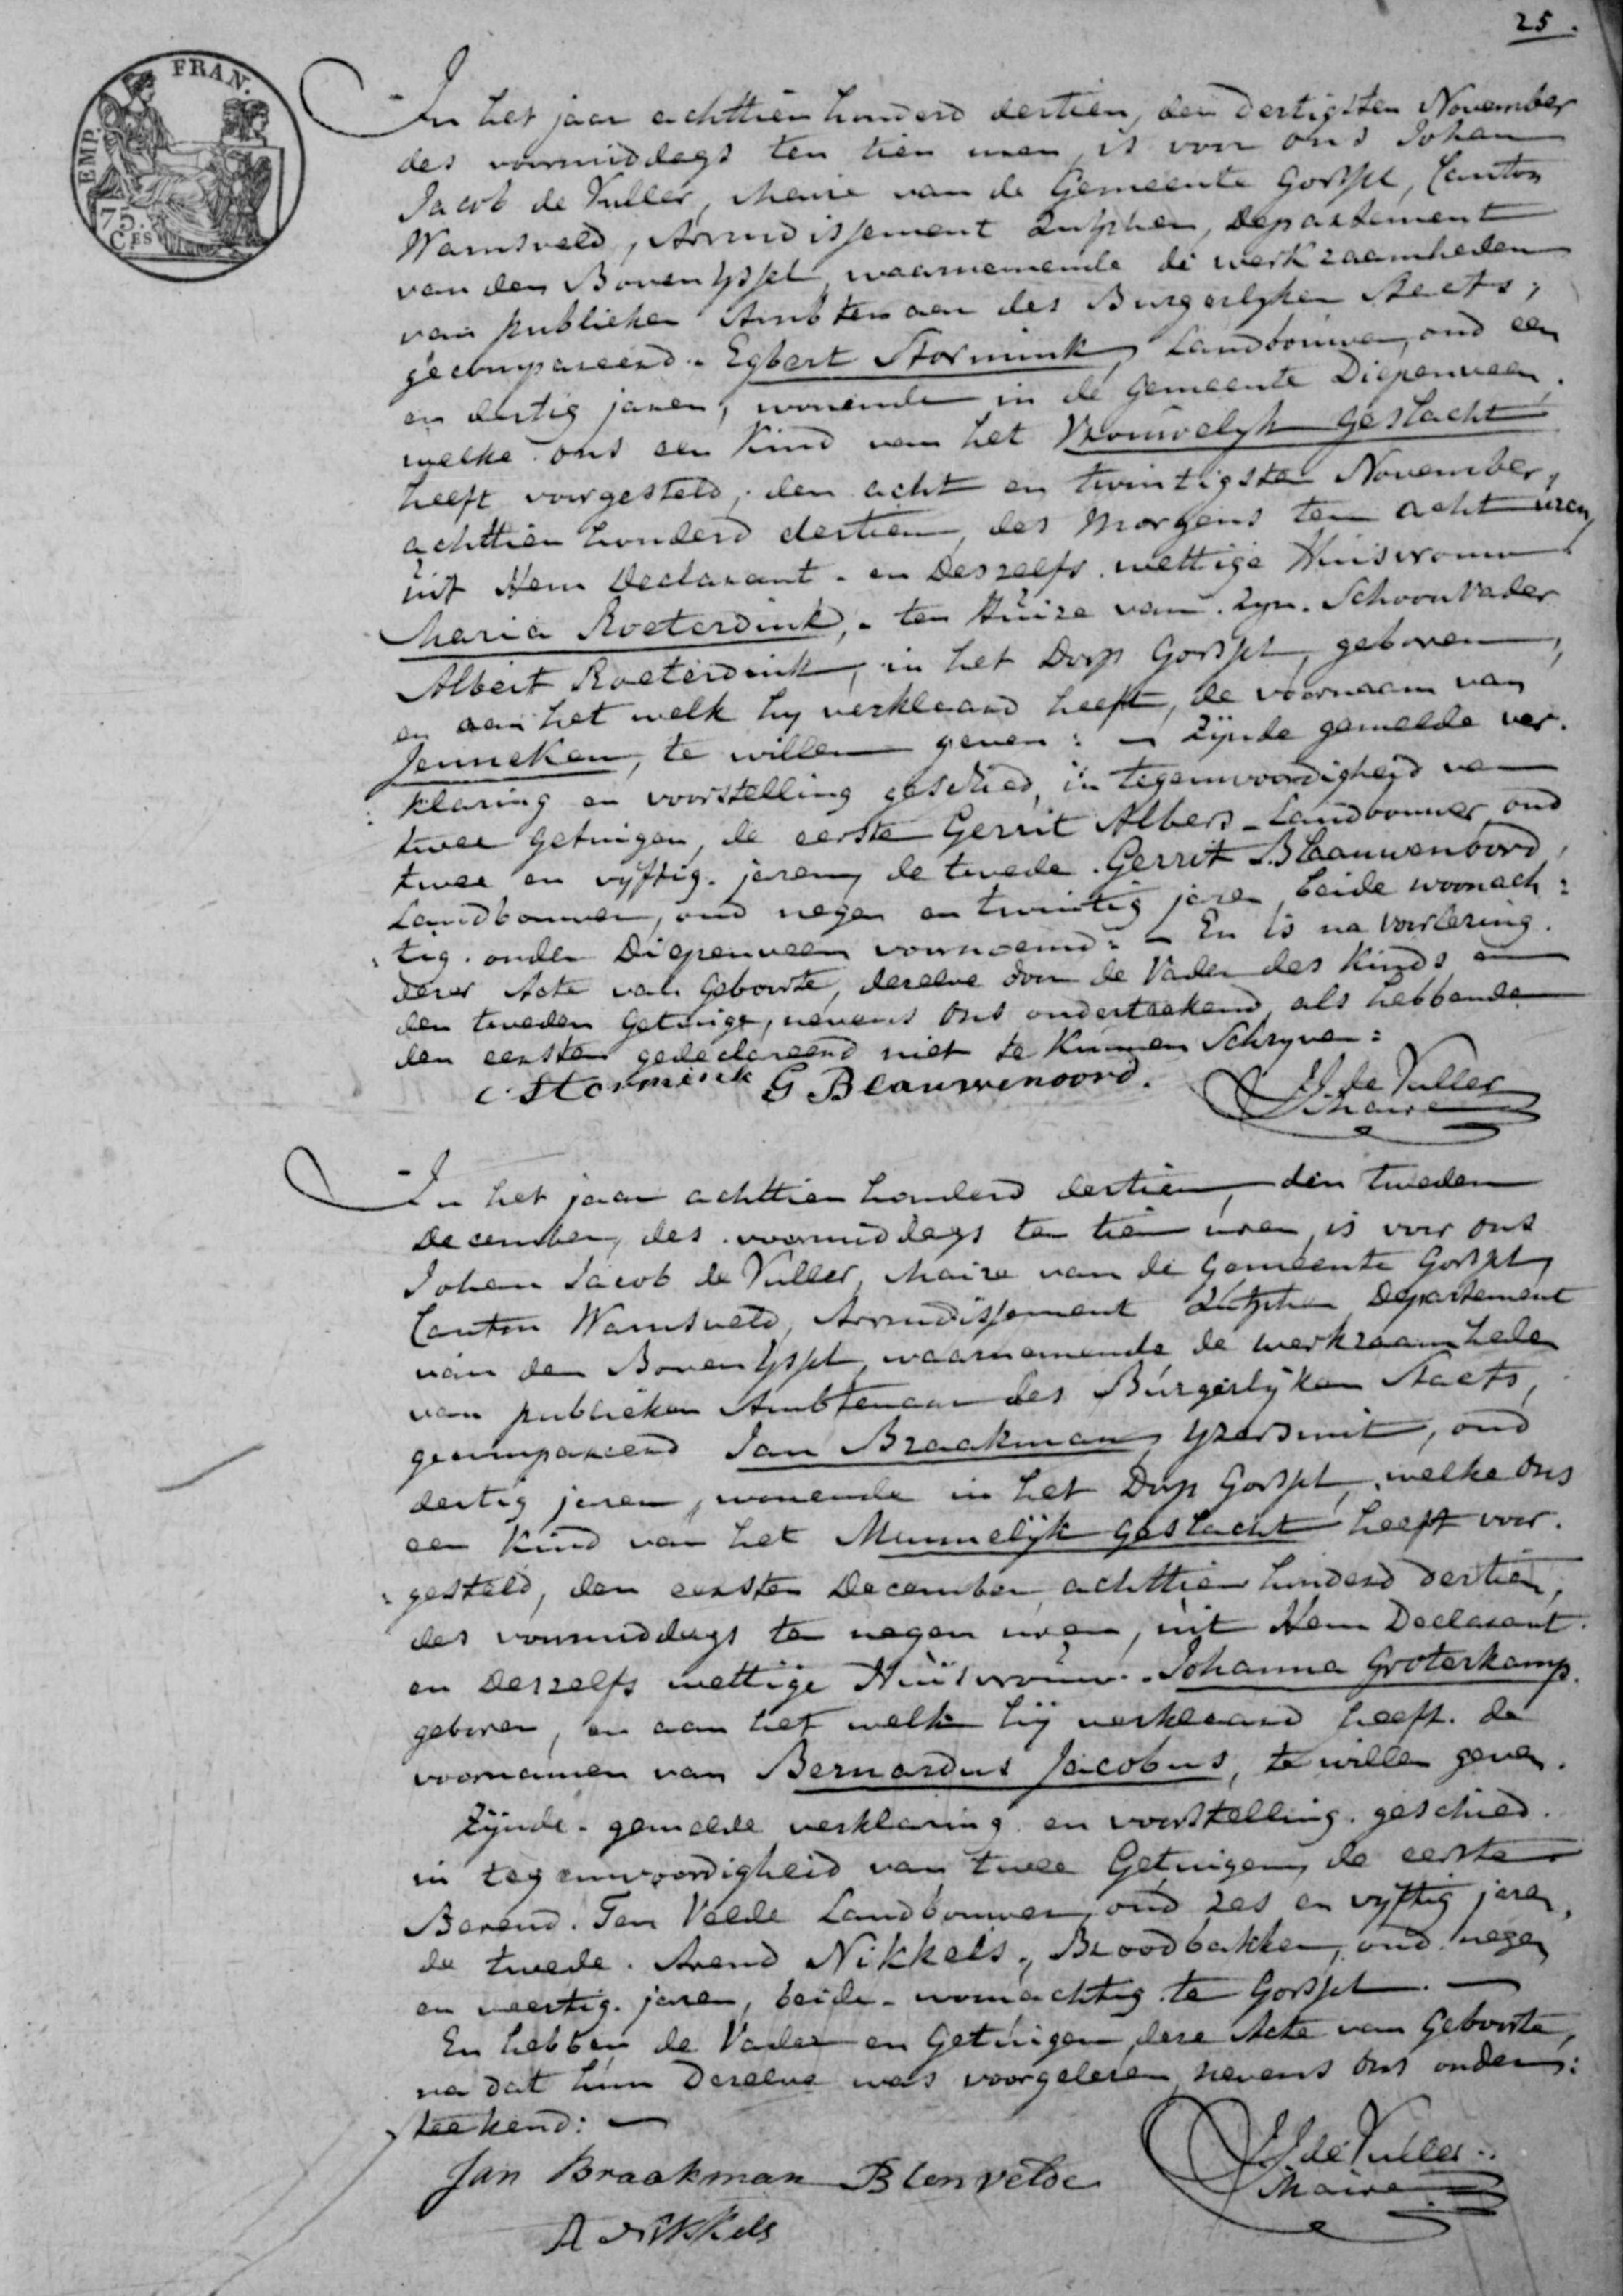 25.
EMP. FRAN.
75.
CES
In het jaar achttien honderd dertien, den dertigsten November
des voormiddags ten tien uren is voor ons Johan
Jacob de Vuller, Maire van de Gemeente Gorssel, Canton
Warnsveld, Arrondissement Zutphen, Departement
van den Boven Yssel, waarnemende de werkzaamheden
van publieken Ambtenaar des Burgerlyken Staets,
gecompareerd - Egbert Stormink, Landbouwer, oud een
en dertig jaren, wonende in de Gemeente Diepenveen,
welke ons een Kind van het Vrouwelyk Geslacht
heeft voorgesteld, den acht en twintigsten November,
achttien honderd dertien, des Morgens ten acht uren,
uit Hem Declarant - en Deszelfs wettige Huisvrouw
Maria Roeterdink, - ten Huize van Zyn Schoonvader
Albert Roeterdink, in het Dorp Gorssel, geboren,
en aan het welk hy verklaard heeft, de voornaam van
Jenneken, te willen geven: - Zijnde gemelde ver-
klaring en voorstelling geschied, in tegenwoordigheid van
twee Getuigen, de eerste Gerrit Albers - Landbouwer oud
twee en vyftig jaren, de tweede Gerrit Blaauwenoord,
Landbouwer, oud negen en twintig jaren, beide woonach:
tig onder Diepenveen voornoemd: - En is na voorlezing
dezer Acte van Geboorte, dezelve door de Vader des Kinds en
den tweeden Getuige, nevens Ons ondertekend, als hebbende
den eersten gedeclareerd niet te Kunnen Schryven:
E Stormink G Blauwenoord. JJ de Vuller
Maire
In het jaar achttien honderd dertien, den tweeden
December, des voormiddags ten tien uren, is voor ons
Johan Jacob de Vuller, Maire van de Gemeente Gorssel,
Canton Warnsveld, Arrondissement Zutphen Departement
van den Boven Yssel, waarnemende de werkzaamheden
van publieken Ambtenaar des Burgerlijken Staets,
gecompareerd Jan Braakman, Yzersmit, oud
dertig jaren, wonende in het Dorp Gorssel, welke Ons
een Kind van het Mannelijk Geslacht heeft voor-
gesteld, den eersten December achttien honderd dertien,
des voormiddags ten negen uren, uit Hem Declarant
en Deszelfs wettige Huisvrouw - Johanna Groterkamp.
geboren, en aan het welk hij verklaard heeft de
voornamen van Bernardus Jacobus, te willen geven.
Zijnde - gemelde verklaring en voorstelling geschied
in tegenwoordigheid van twee Getuigen, de eerste
Berend Ten Velde Landbouwer, oud zes en vyftig jaren,
de tweede Arend Nikkels, Broodbakker, oud negen
en veertig jaren, beide - woonachtig te Gorssel. -
En hebben de Vader en Getuigen deze Acte van Geboorte,
na dat hun Dezelve was voorgelezen, nevens Ons onder:
teekend: -
Jan Braakman B ten Velde JJ de Vuller
Maire
A Nikkels